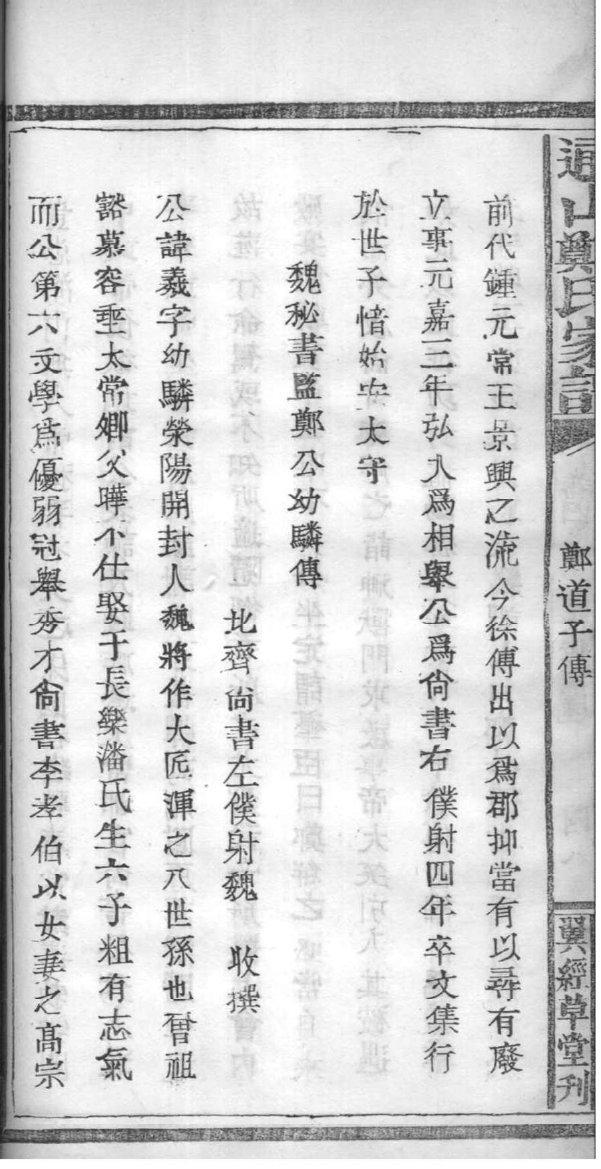 通山鄭氏家譜
鄭道子傳
翼經草堂刊
前代鍾元常王景興之流今徐傅出以爲郡抑當有以尋有廢
立事元嘉三年弘入爲相舉公爲尙書右僕射四年卒文集行
於世子愔始安太守
魏秘書監鄭公幼驎傳
北齊尙書左僕射魏 收撰
公諱羲字幼驎滎陽開封人魏將作大匠渾之八世孫也曾祖
豁慕容垂太常卿父曄不仕娶于長樂潘氏生六子粗有志氣
而公第六文學爲優弱冠舉秀才尙書李孝伯以女妻之高宗